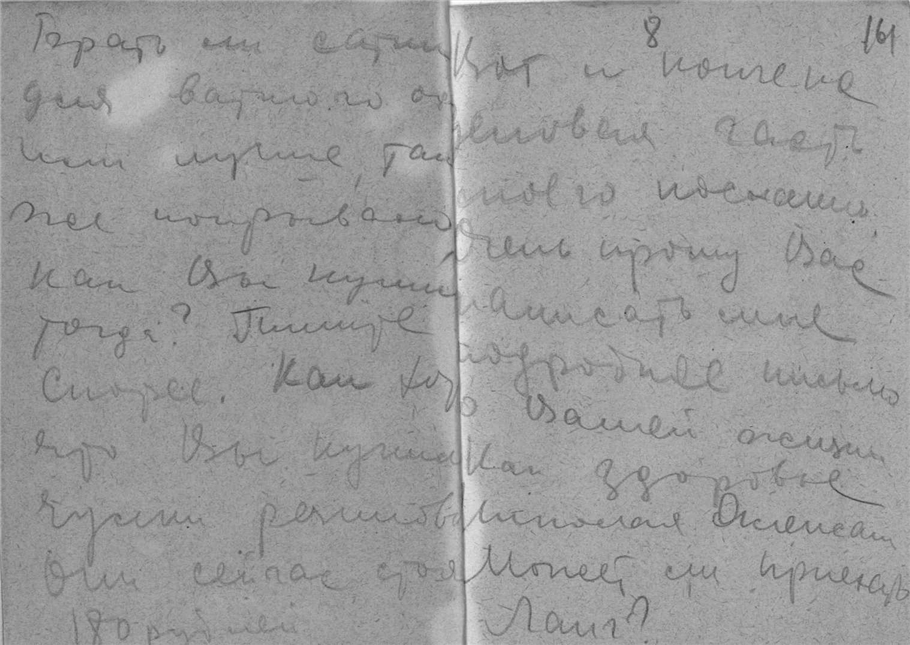 Брать ли сатин
для ватного од
или лучше, так
же покрывало
как Вы купили
тогда? Пишите
скорее. Как хор
что Вы купили
чулки резинов
Они сейчас стоят
180 рублей
8 161
Вот и конче на
деловая часть
моего послания.
Очень прошу Вас
написать мне
подробнее письмо
о Вашей жизни
Как здоровье
Николая Алексан
Может ли приехать
Ланг?